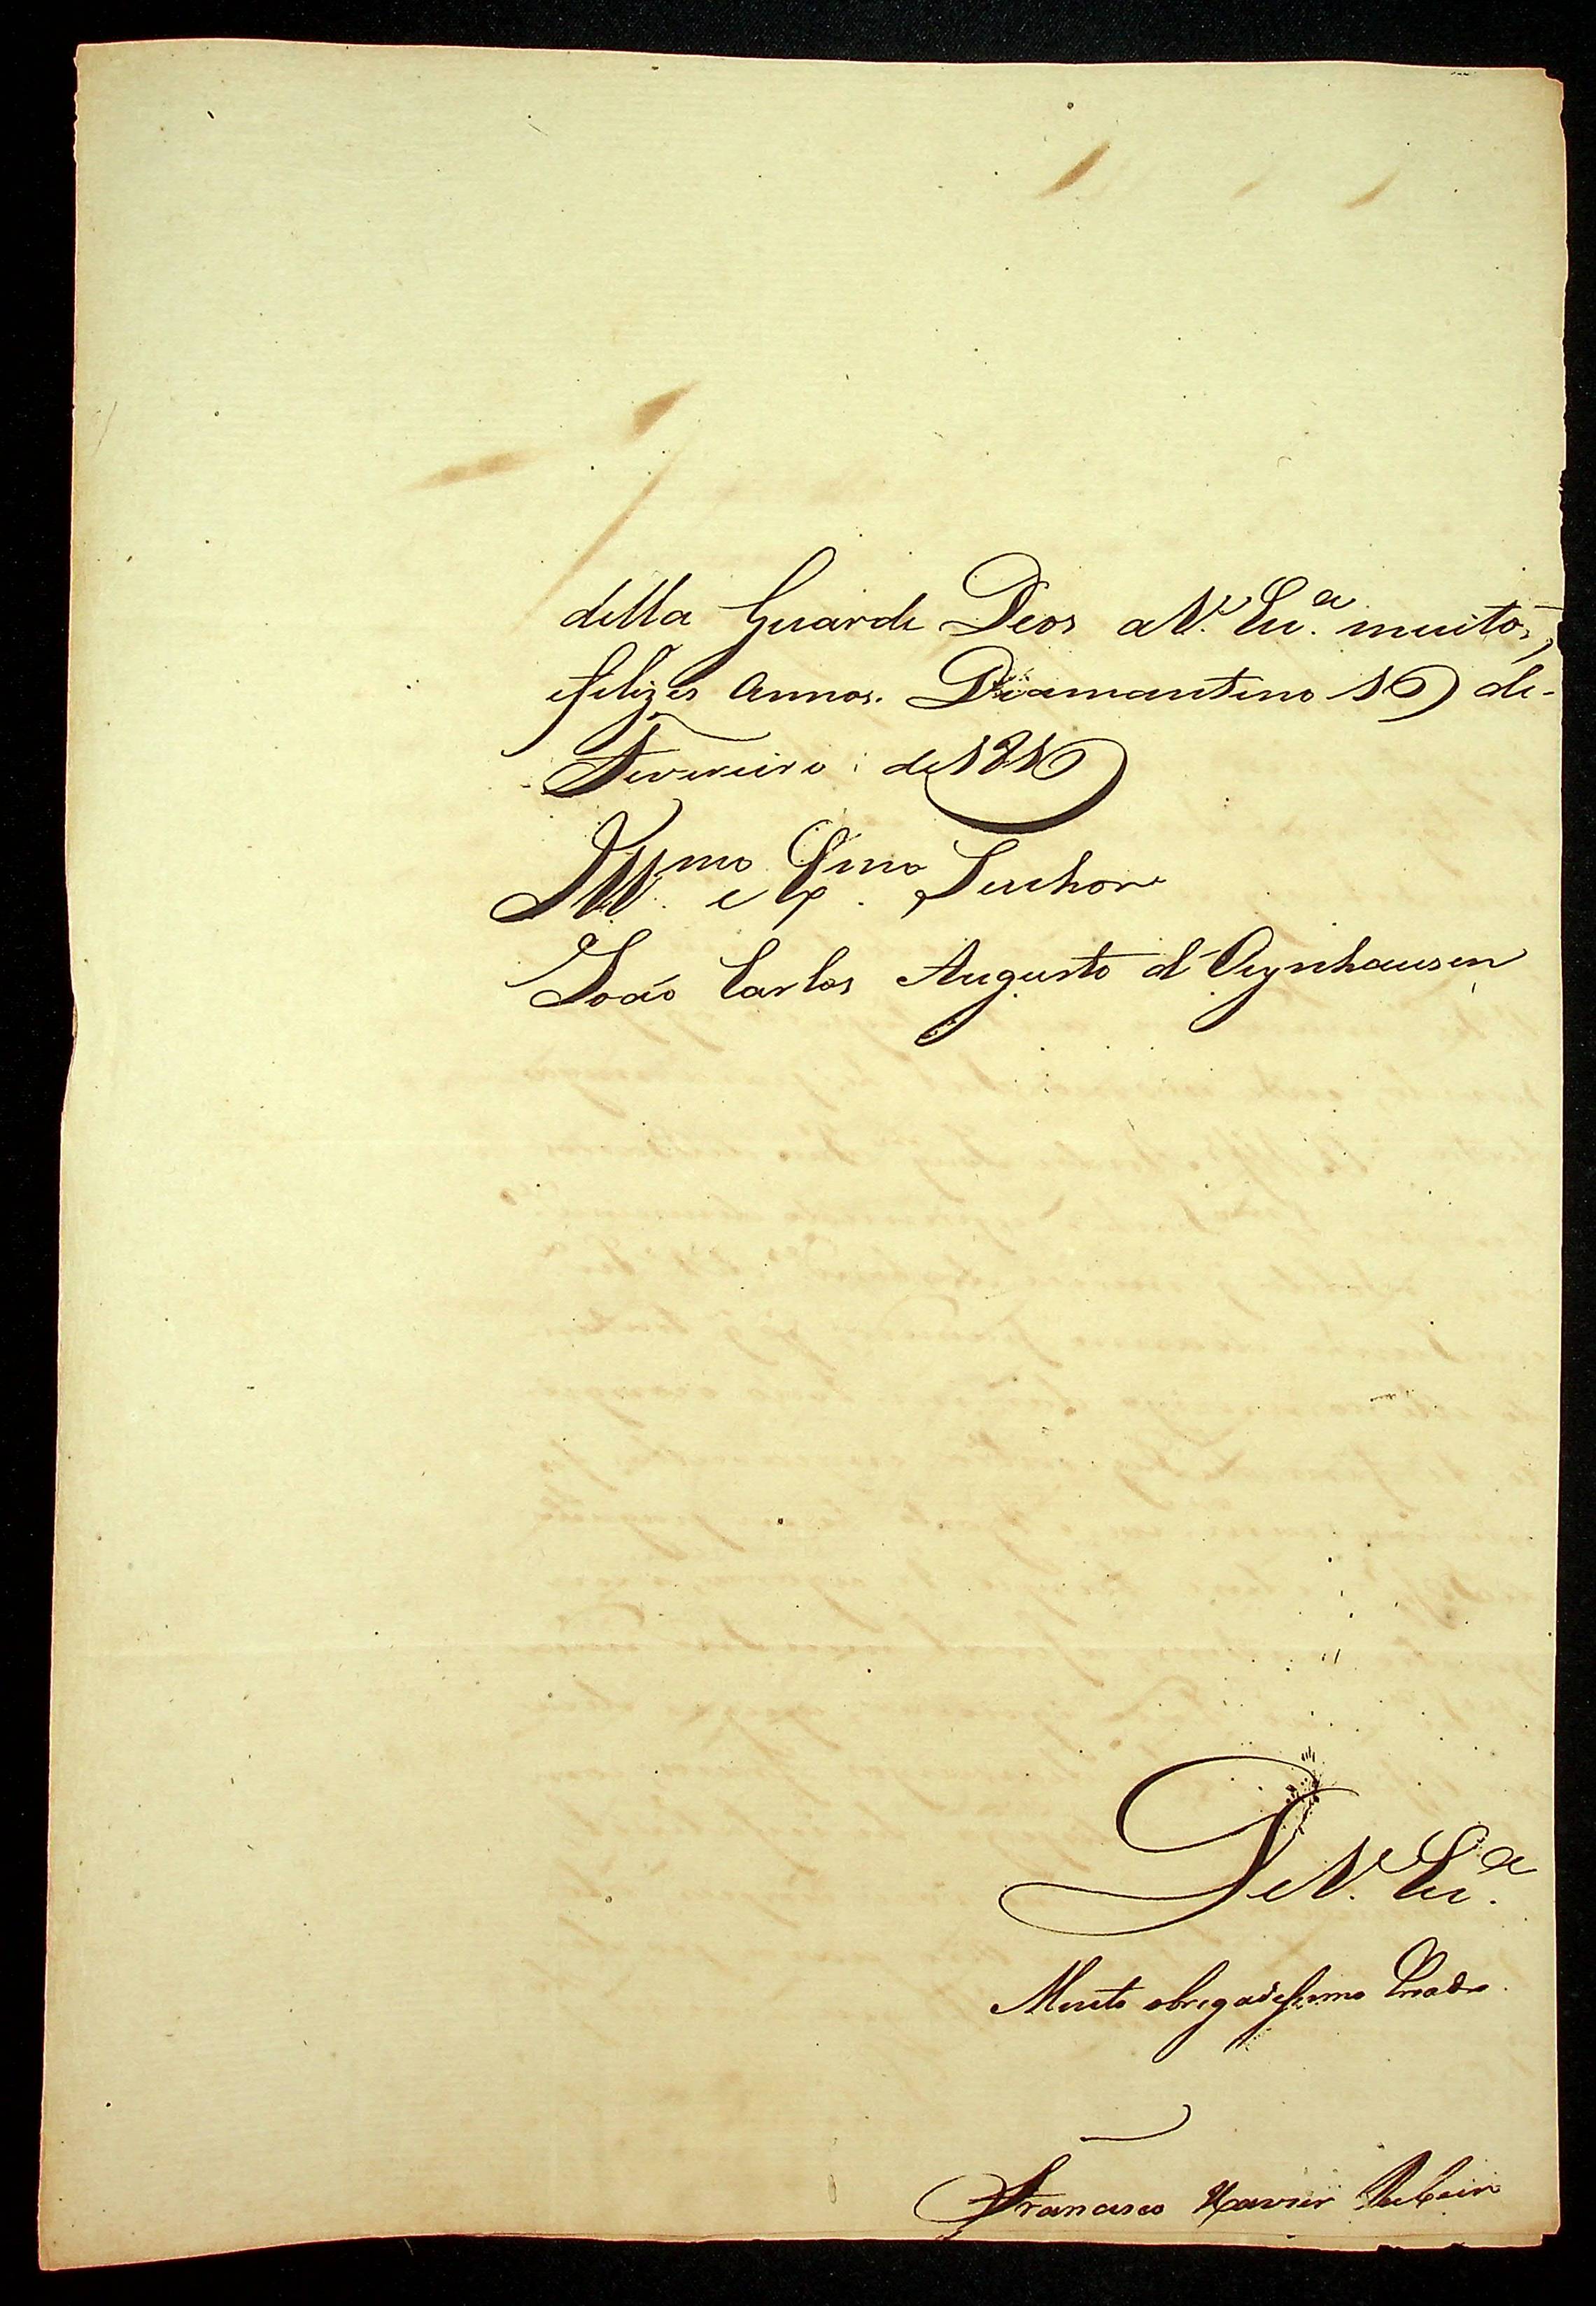 della Guarde Deos a V. Exª. muitos,
efelizes Annos. Diamantino 16 de
Fevereiro: de 1816
Illmo. e Exmo. Senhor
João Carlos Augusto d'Oeynhausen
De V. Exª.
Muito obrigadissimo Criado.
Francisco Xavier Ribeiro